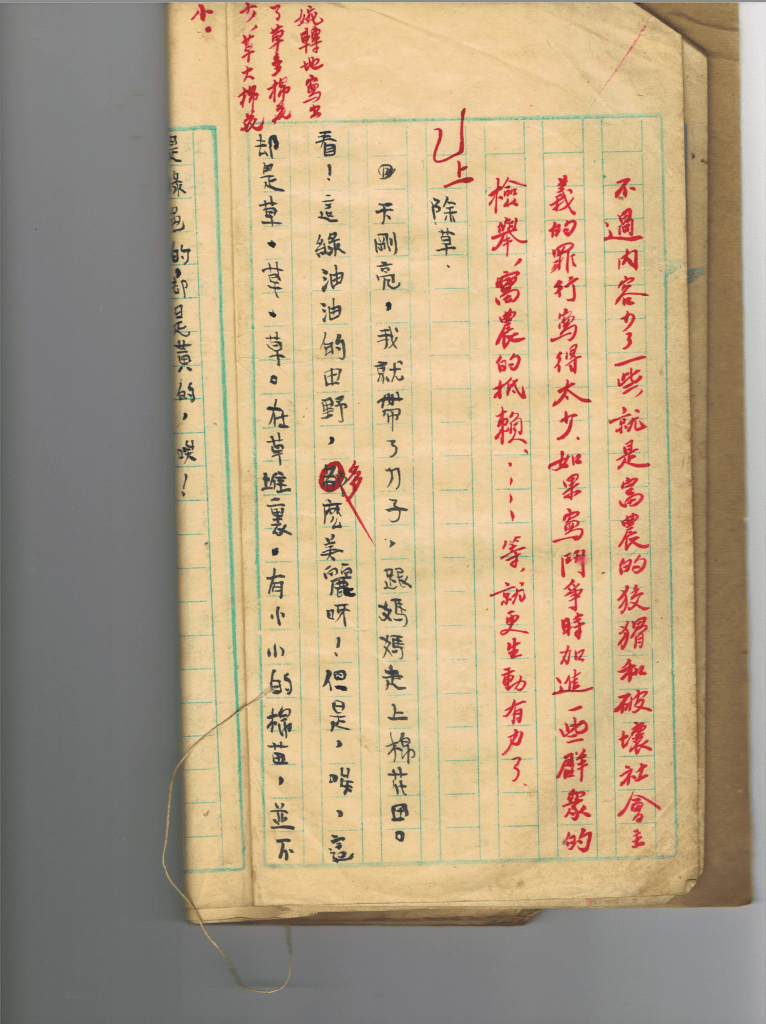 不過內容少了一些，就是富農的狡猾和破壞社會主
義的罪行寫得太少，如果寫鬥爭時加進一些群衆的
檢舉，富農的抵賴、…… 等，就更生動有力了。
上
除草．
天剛亮，我就帶了刀子，跟媽媽走上棉花田。
看！這綠油油的田野，多麽美麗呀！但是，唉，這
却是草、草、草。在草堆裏，有小小的棉苗，並不
是綠色的，却是黃的，唉！
婉轉地寫出
了草多棉花
少，草大棉花
小。